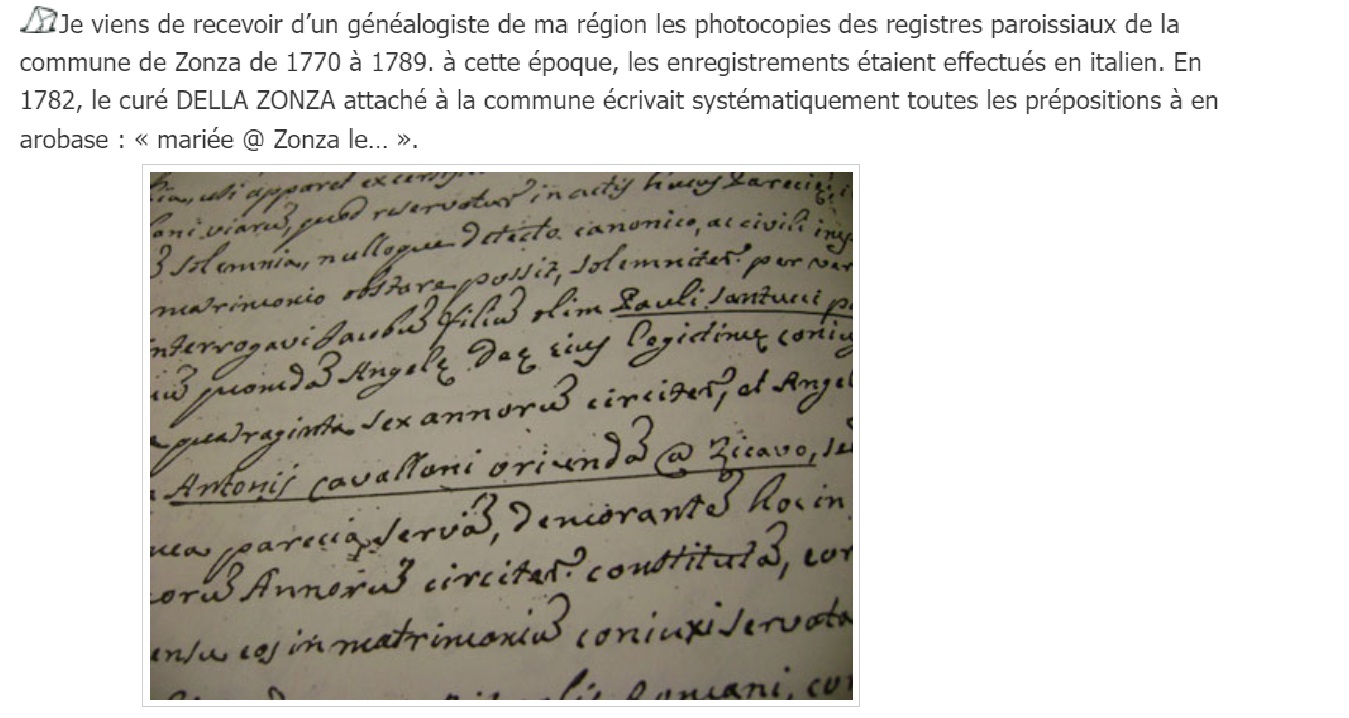 Je viens de recevoir d’un généalogiste de ma région les photocopies des registres paroissiaux de la
commune de Zonza de 1770 à 1789. à cette époque, les enregistrements étaient effectués en italien. En
1782, le curé DELLA ZONZA attaché à la commune écrivait systématiquement toutes les prépositions à en
arobase : « mariée @ Zonza le... ».
ubi apparet
quod reservatur in actis huius Parecię
solemnia, nulloque detecto canonico, ac civili
matrimonio obstare possit, solemniter per
interrogavi Jacobũ filiũ olim Pauli Santucci
quondã Angelę Deę eius legitimę
quadraginta sex annorũ circiter, et
Antonij Cavallani oriundã @ Zicavo,
parecia servã, demorantẽ hoc in
Annorũ circiter constitutã,
eos in matrimoniũ coniuxi servata